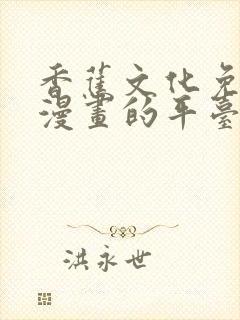 香蕉文化免
漫畫的平臺
洪永世